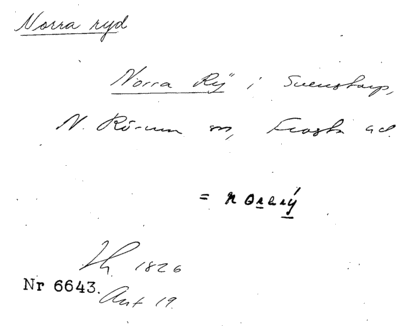 Norra ryd
Norra Rÿ i Svenstorp,
N. Rörum sn, Frosta hd.
= norrý
Th. 1826
Nr 6643.
Ant 19.